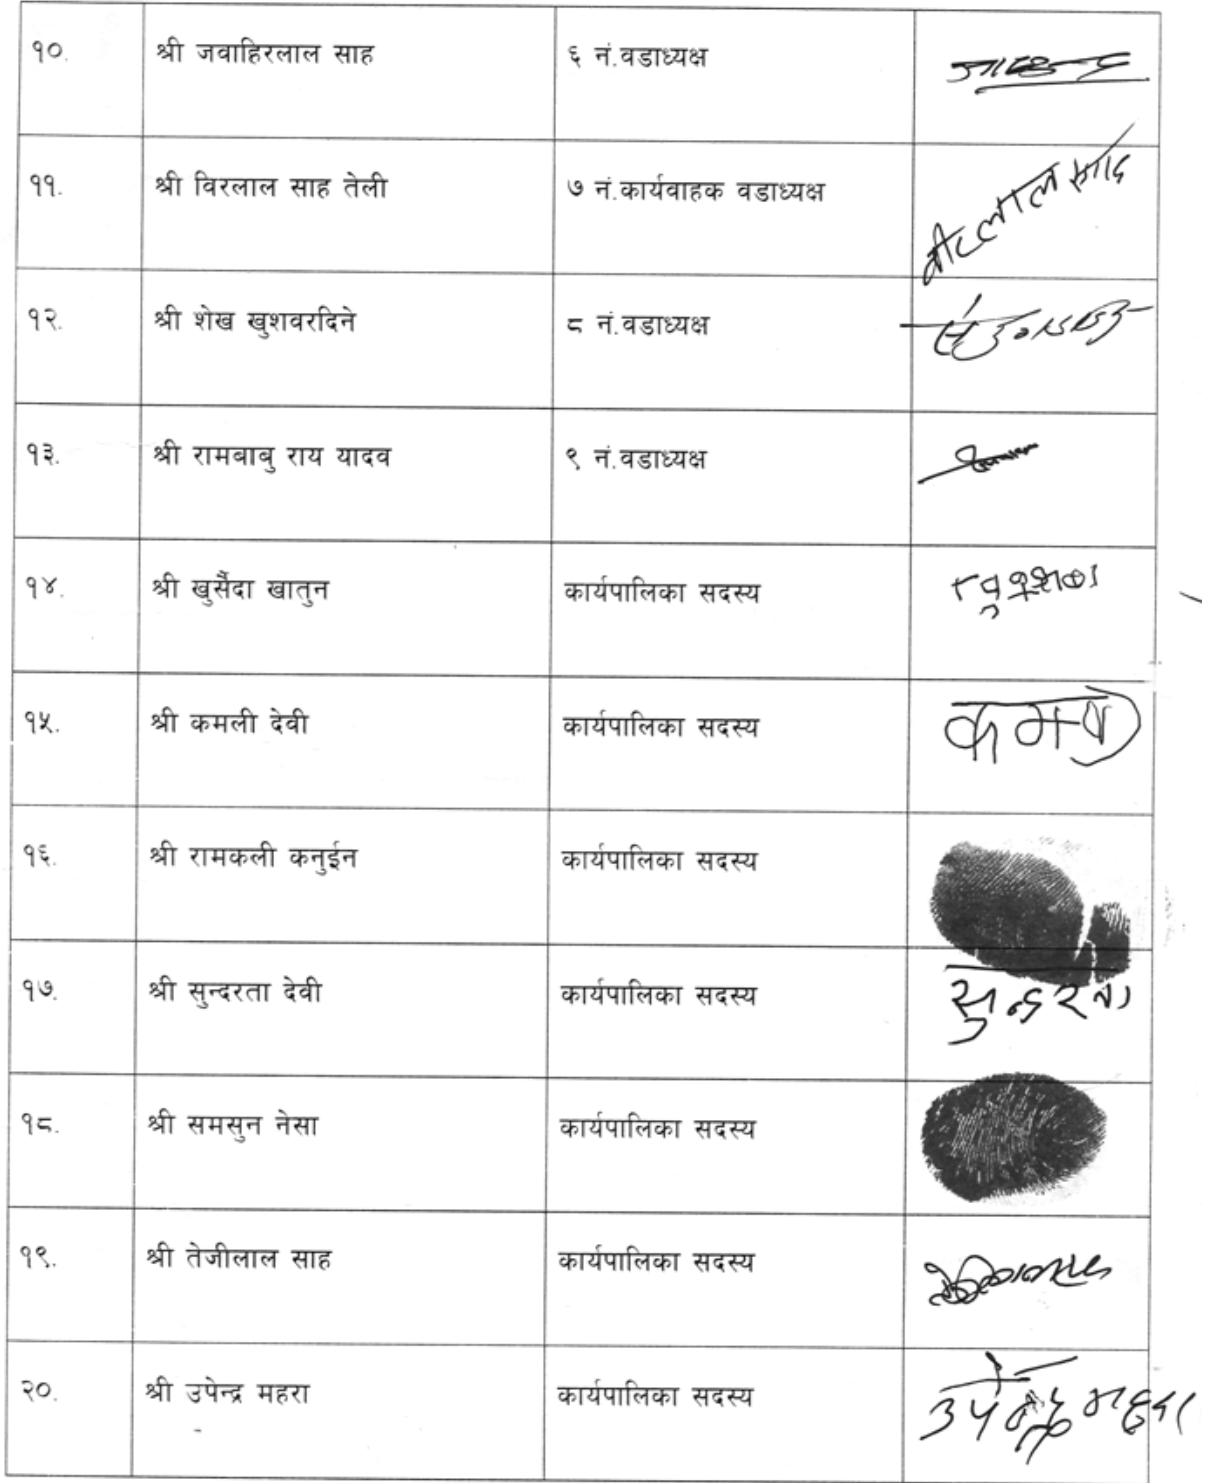 १०. श्री जवाहिरलाल साह ६ नं.वडाध्यक्ष
११. श्री विरलाल साह तेली ७ नं.कार्यवाहक वडाध्यक्ष वीरलाल साह
१२. श्री शेख खुशवरदिने ८ नं.वडाध्यक्ष
१३. श्री रामबाबु राय यादव ९ नं.वडाध्यक्ष
१४. श्री खुर्सैदा खातुन कार्यपालिका सदस्य
१५. श्री कमली देवी कार्यपालिका सदस्य
१६. श्री रामकली कनुईन कार्यपालिका सदस्य
१७. श्री सुन्दरता देवी कार्यपालिका सदस्य सुन्दरता
१८. श्री समसुन नेसा कार्यपालिका सदस्य
१९. श्री तेजीलाल साह कार्यपालिका सदस्य
२०. श्री उपेन्द्र महरा कार्यपालिका सदस्य उपेन्द्र महरा